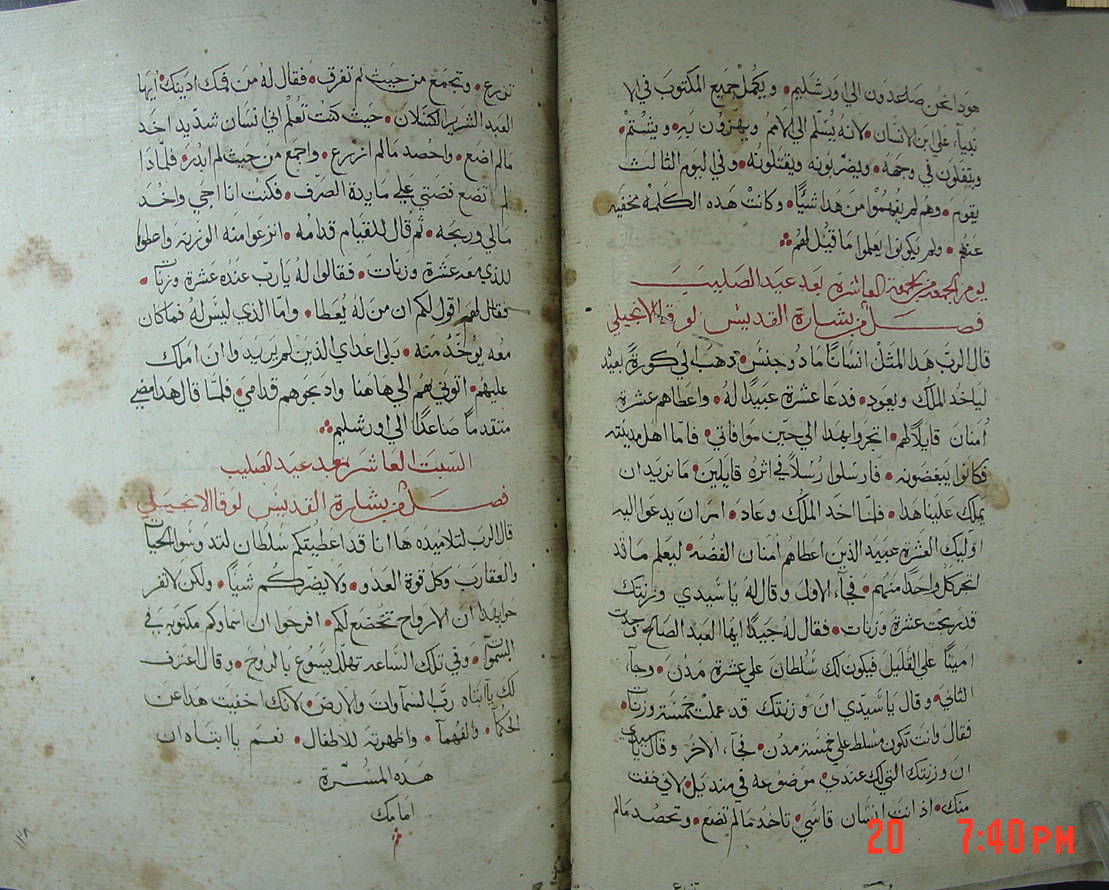 هودا نحن صاعدون الي اورشليم • ويكمل جميع المكتوب في الا
نبياء علي ابن الانسان • لانه يسلم الي الامم ويهزوون به • ويشتم •
ويتفلون في وجهه • ويضربونه ويقتلونه • وفي اليوم الثالث
يقوم • وهم لم يفهموا من هدا شيا • وكانت هده الكلمة مخفيه
عنهم • ولم يكونوا يعلموا ما قيل لهم
يوم الجمعه من الجمعة العاشرة بعد عيد الصليب
فصل من بشارة القديس لوقا الانجيلي
قال الرب هدا المثل انسانا ما دو جنس • دهب الي كورة بعيد
لياخد الملك ويعود • فدعا عشرة عبيدا له • واعطاهم عشرة
امنان قايلا لهم • اتجروا بهدا الي حين موافاتي • فاما اهل مدينته
فكانوا يبغضونه • فارسلوا رسلا في اثره قايلين • ما نريد ان
يملك علينا هدا • فلما اخد الملك وعاد • امر ان يدعوا اليه
اوليك العشرة عبيد الدين اعطاهم امنان الفضه • ليعلم ما قد
اتجر كل واحد منهم • فجاء الاول وقال له يا سيدي وزنتك
قد ربحت عشرة وزنات • فقال له جيدا ايها العبد الصالح وجدت
امينا علي القليل فيكون لك سلطان علي عشرة مدن • وجاء
الثاني • وقال يا سيدي ان وزنتك قد عملت خمسة وزنات •
فقال وانت تكون مسلط علي خمسة مدن • فجاء الاخر وقال يا سيدي
ان وزنتك التي لك عندي • موضوعه في منديل • لاني خفت
منك • اد انت انسان قاسي • تاخد ما لم تضع • وتحصد مالم
تزرع • وتجمع من حيث لم تفرق • فقال له من فمك ادينك • ايها
العبد الشرير الكسلان • حيث كنت تعلم اني انسان شديد اخد
مالم اضع • واحصد مالم ازرع • واجمع من حيث لم ابدر • فلمادا
لم تضع فضتي علي مايدة الصرف • فكنت انا اجي واخد
مالي وربحه • ثم قال للقيام قدامه • انزعوا منه الوزنة واعطوا
للدي معه عشرة وزنات • فقالوا له يا رب عنده عشرة وزنات •
فقال لهم اقول لكم ان من له يعطا • واما الدي ليس له فما كان
معه يوخد منه • بلي اعداي الدين لم يريدوا ان املك
عليهم • اتوني بهم الي هاهنا وادبحوهم قدامي • فلما قال هدا مضي
متقدما صاعدا الي اورشليم
السبت العاشر بعد عيد الصليب
فصل من بشارة القديس لوقا الانجيلي
قال الرب لتلاميده ها انا قد اعطيتكم سلطان لتدوسوا الحيات
والعقارب وكل قوة العدو • ولا يضركم شيا • ولكن لا تفر
حوا بهدا ان الارواح تخضع لكم • افرحوا ان اسماوكم مكتوبه في
السموات • وفي تلك الساعه تهلل يسوع بالروح • وقال اعترف
لك يا ابتاه رب السماوات والارض • لانك اخفيت هدا عن
الحكما • والفهما • واظهرته للاطفال • نعم يا ابتاه ان
هده المسرة
امامك
١٢٨
20 7:40PM